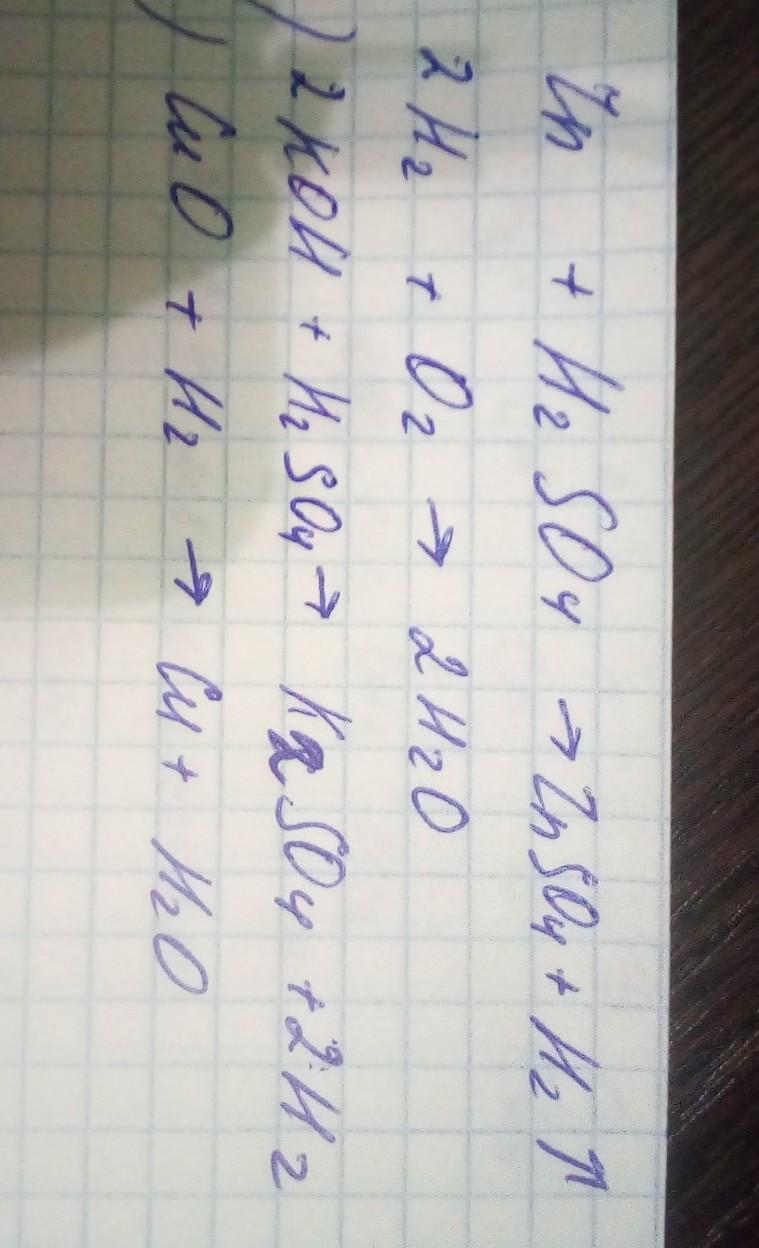 Zn + H₂SO₄ → ZnSO₄ + H₂ ↑
2H₂ + O₂ → 2H₂O
) 2KOH + H₂SO₄ → K₂SO₄ + 2H₂
) CuO + H₂ → Cu + H₂O